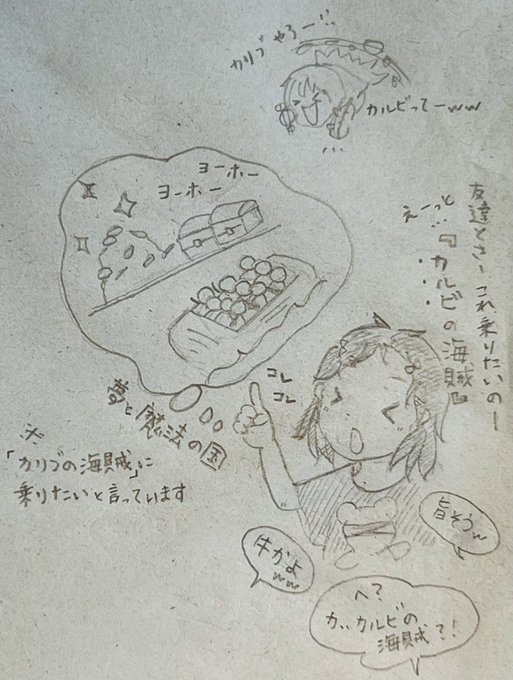 カリブやろー!!
カルビってーww
...
ヨーホー
ヨーホー
友達とさーこれ乗りたいのー
えーっと…『カルビの海賊』
コレ
コレ
夢と魔法の国
※
「カリブの海賊」に
乗りたいと言っています
旨そうw
牛かよ
ww
へ?
カ、、カルビの
海賊?!